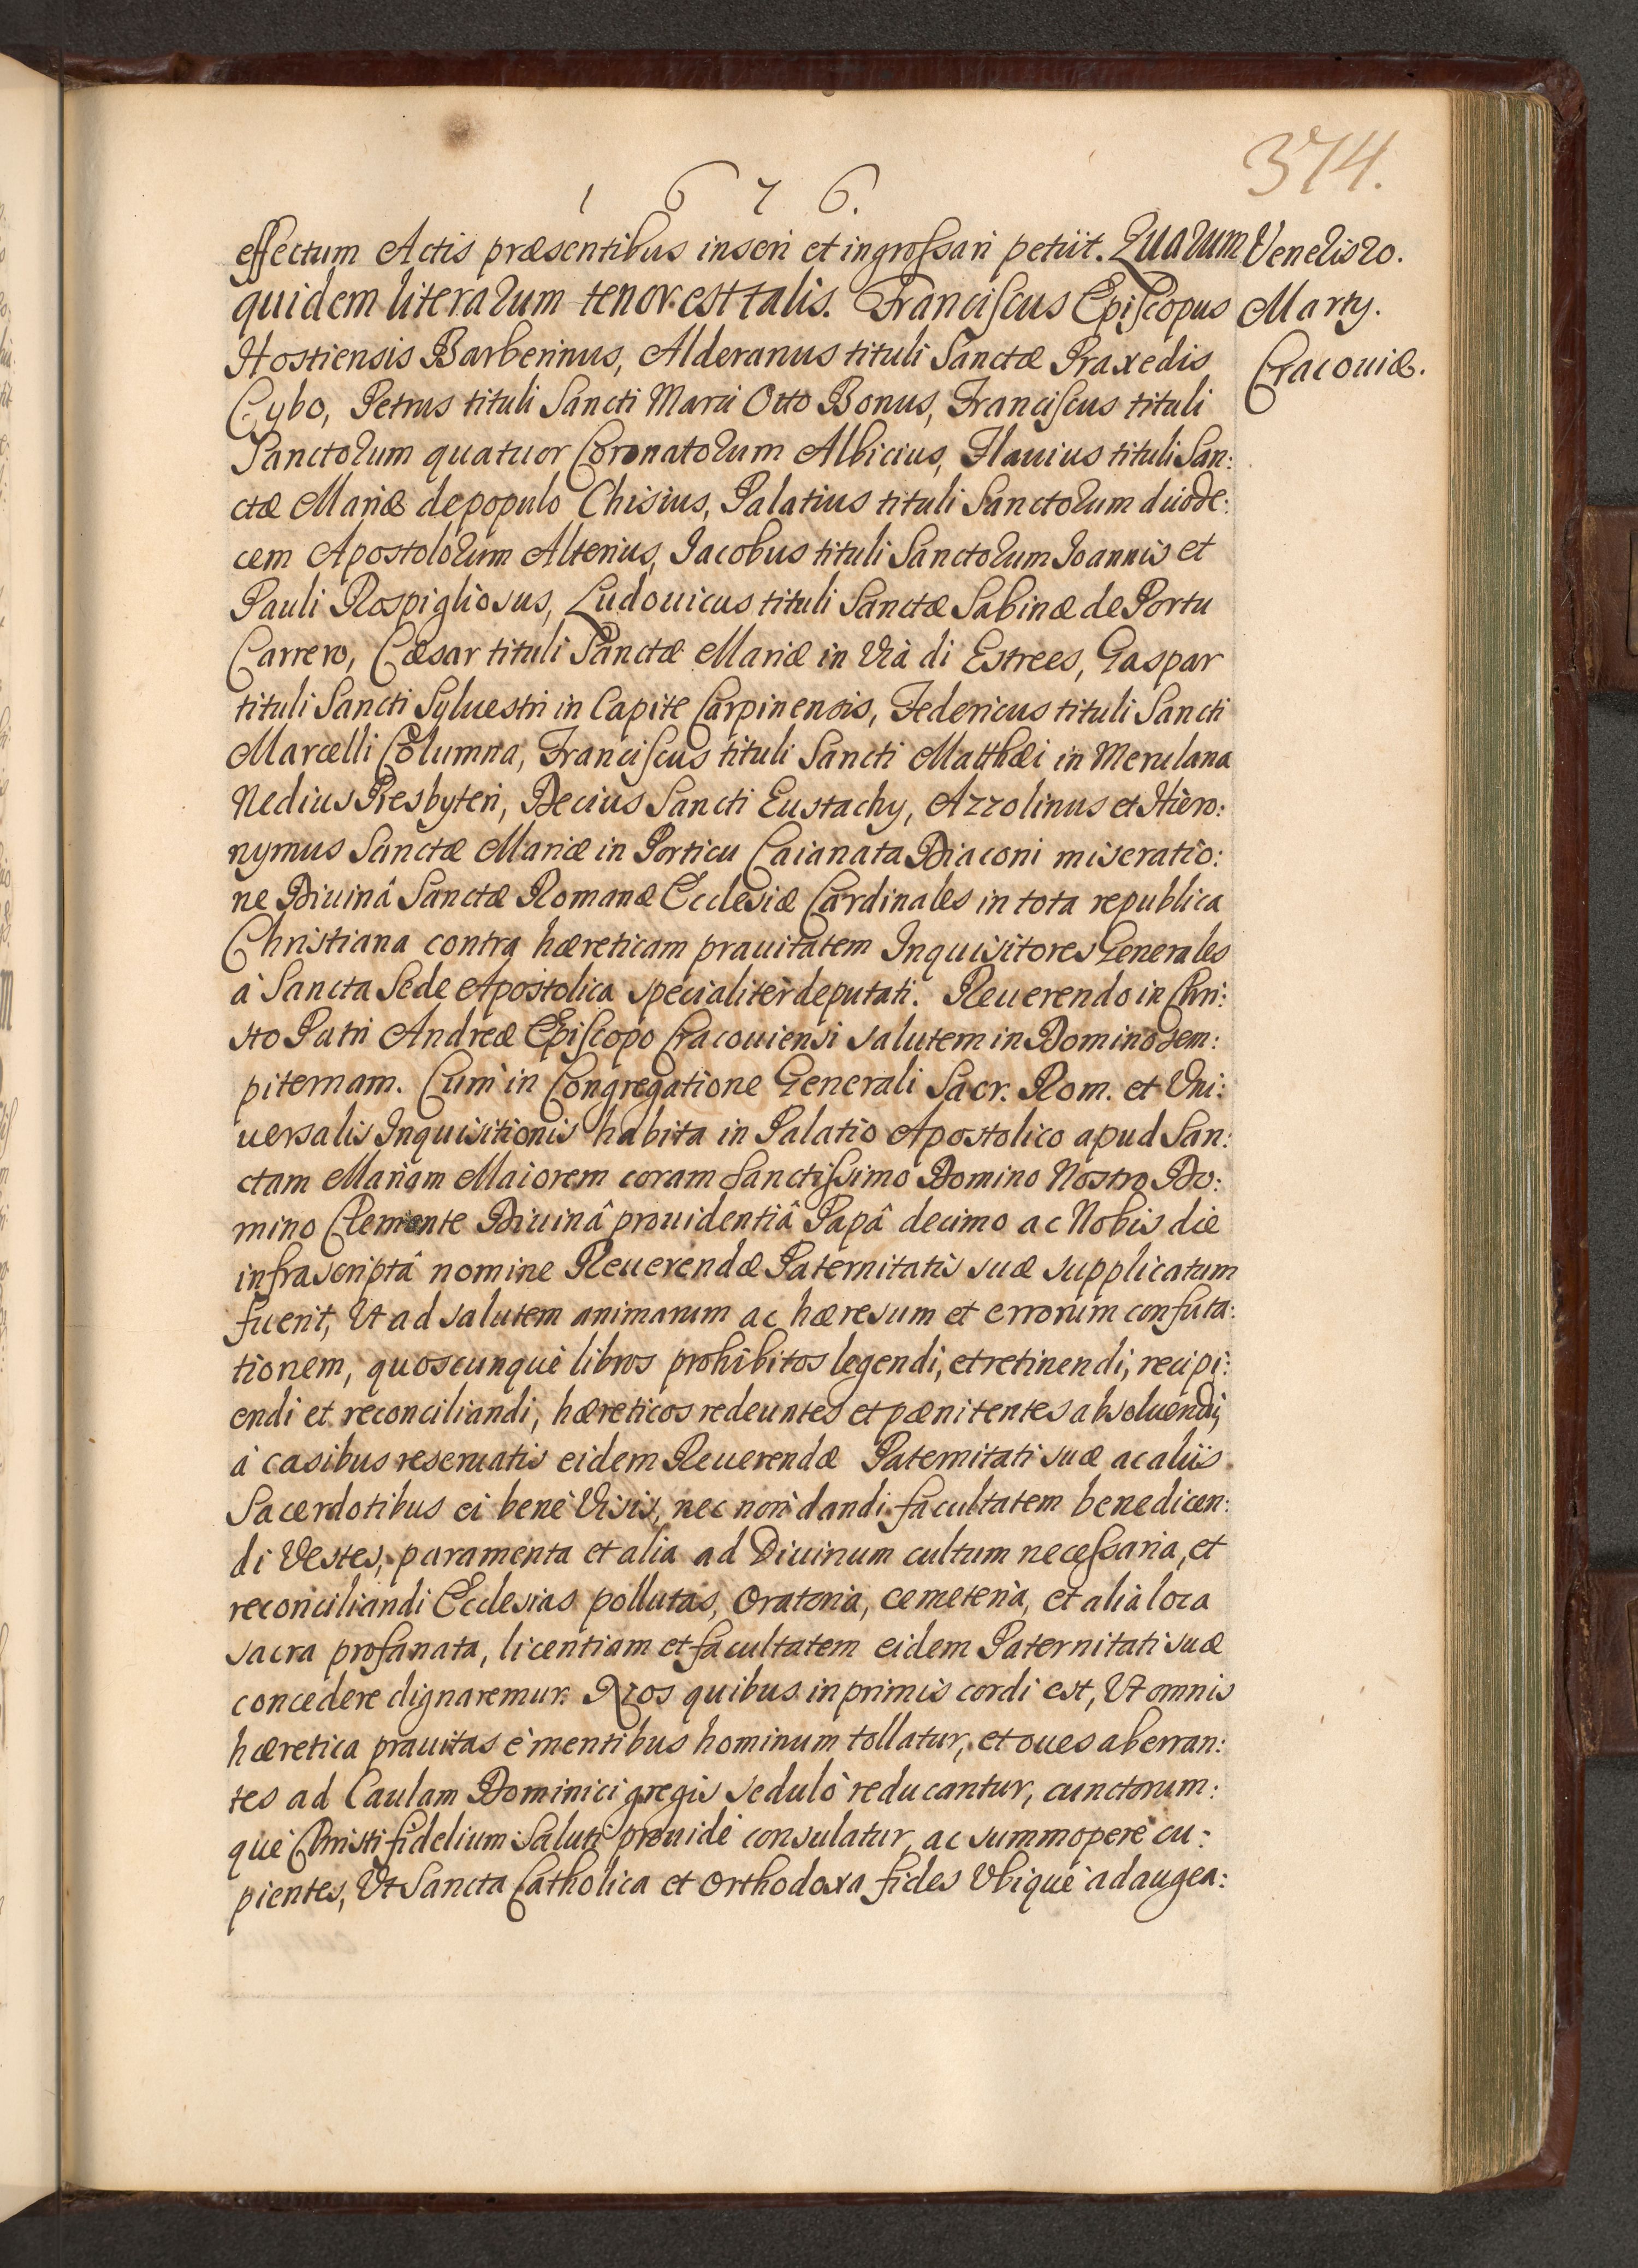 374.
1 6 7 6.
effectum Actis præsentibus inseri et ingrossari petiit. Quarum
quidem literarum tenor est talis. Franciscus Episcopus
Hostiensis Barberinus, Alderanus tituli Sanctæ Praxedis
Cybo, Petrus tituli Sancti Marci Otto Bonus, Franciscus tituli
Sanctorum quatuor Coronatorum Albicius, Flauius tituli San:
ctæ Mariæ de populo Chisius, Palatius tituli Sanctorum duode:
cem Apostolorum Alterius, Iacobus tituli Sanctorum Joannis et
Pauli Rospigliosus, Ludouicus tituli Sanctæ Sabinæ de Portu
Carrero, Cæsar tituli Sanctæ Mariæ in Vià di Estrees, Gaspar
tituli Sancti Syluestri in Capite Carpinensis, Federicus tituli Sancti
Marcelli Columna, Franciscus tituli Sancti Matthæi in Merulana
Nedius Presbyteri, Decius Sancti Eustachy, Azzolinus et Hiero:
nymus Sanctæ Mariæ in Porticu Caianata Diaconi miseratio:
ne Diuinâ Sanctæ Romanæ Ecclesiæ Cardinales in tota republica
Christiana contra hæreticam prauitatem Inquisitores Generales
à Sancta Sede Apostolica specialiter deputati. Reuerendo in Chri:
sto Patri Andreæ Episcopo Cracouiensi salutem in Domino sem:
piternam. Cum in Congregatione Generali Sacr. Rom. et Vni:
uersalis Inquisitionis habita in Palatio Apostolico apud San:
ctam Mariam Maiorem coram Sanctissimo Domino Nostro Do:
mino Clemente Diuinâ prouidentiâ Papâ decimo ac Nobis die
infrascriptâ nomine Reuerendæ Paternitatis suæ supplicatum
fuerit, Vt ad salutem animarum ac hæresum et errorum confuta:
tionem, quoscunquè libros prohibitos legendi, et retinendi, recipi:
endi et reconciliandi, hæreticos redeuntes et pænitentes absoluendi,
à casibus reseruatis eidem Reuerendæ Paternitati suæ ac aliis
Sacerdotibus ei benè Visis, nec non dandi facultatem benedicen:
di Vestes, paramenta et alia ad Diuinum cultum necessaria, et
reconciliandi Ecclesias pollutas, Oratoria, cemeteria, et alia loca
sacra profanata, licentiam et facultatem eidem Paternitati suæ
concedere dignaremur. Nos quibus in primis cordi est, Vt omnis
hæretica prauitas è mentibus hominum tollatur, et oues aberran:
tes ad Caulam Dominici gregis sedulò reducantur, cunctorum:
què Christi fidelium Saluti prouidè consulatur, ac summoperè cu:
pientes, Vt Sancta Catholica et Orthodoxa fides Vbiquè adaugea:
Veneris 20.
Marty.
Cracouiæ.